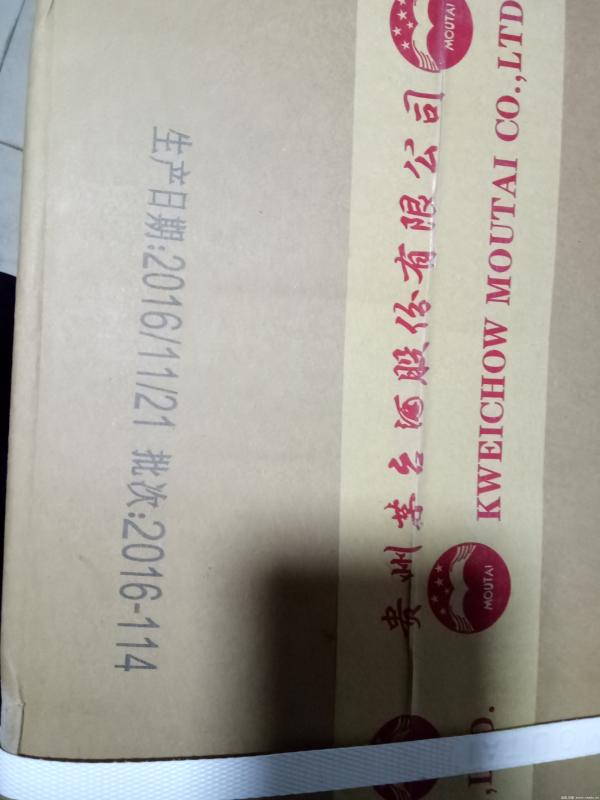 生产日期:2016/11/21 批次:2016-114
贵州茅台酒股份有限公司
KWEICHOW MOUTAI CO.,LTD
MOUTAI
MOUTAI